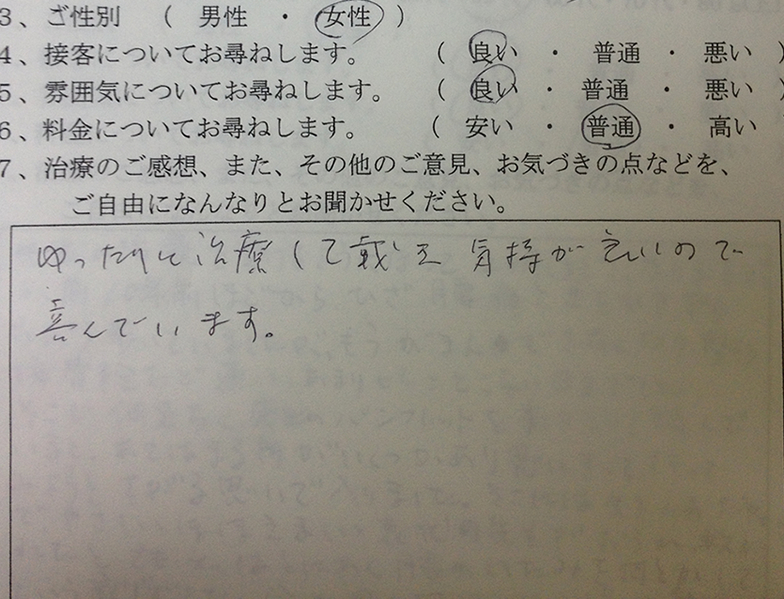 3、ご性別 ( 男性 ・ 女性 )
4、接客についてお尋ねします。 ( 良い ・ 普通 ・ 悪い )
5、雰囲気についてお尋ねします。 ( 良い ・ 普通 ・ 悪い )
6、料金についてお尋ねします。 ( 安い ・ 普通 ・ 高い
7、治療のご感想、また、その他のご意見、お気づきの点などを、
ご自由になんなりとお聞かせください。
ゆったりと治療して戴き 気持が良いので
喜んでいます。